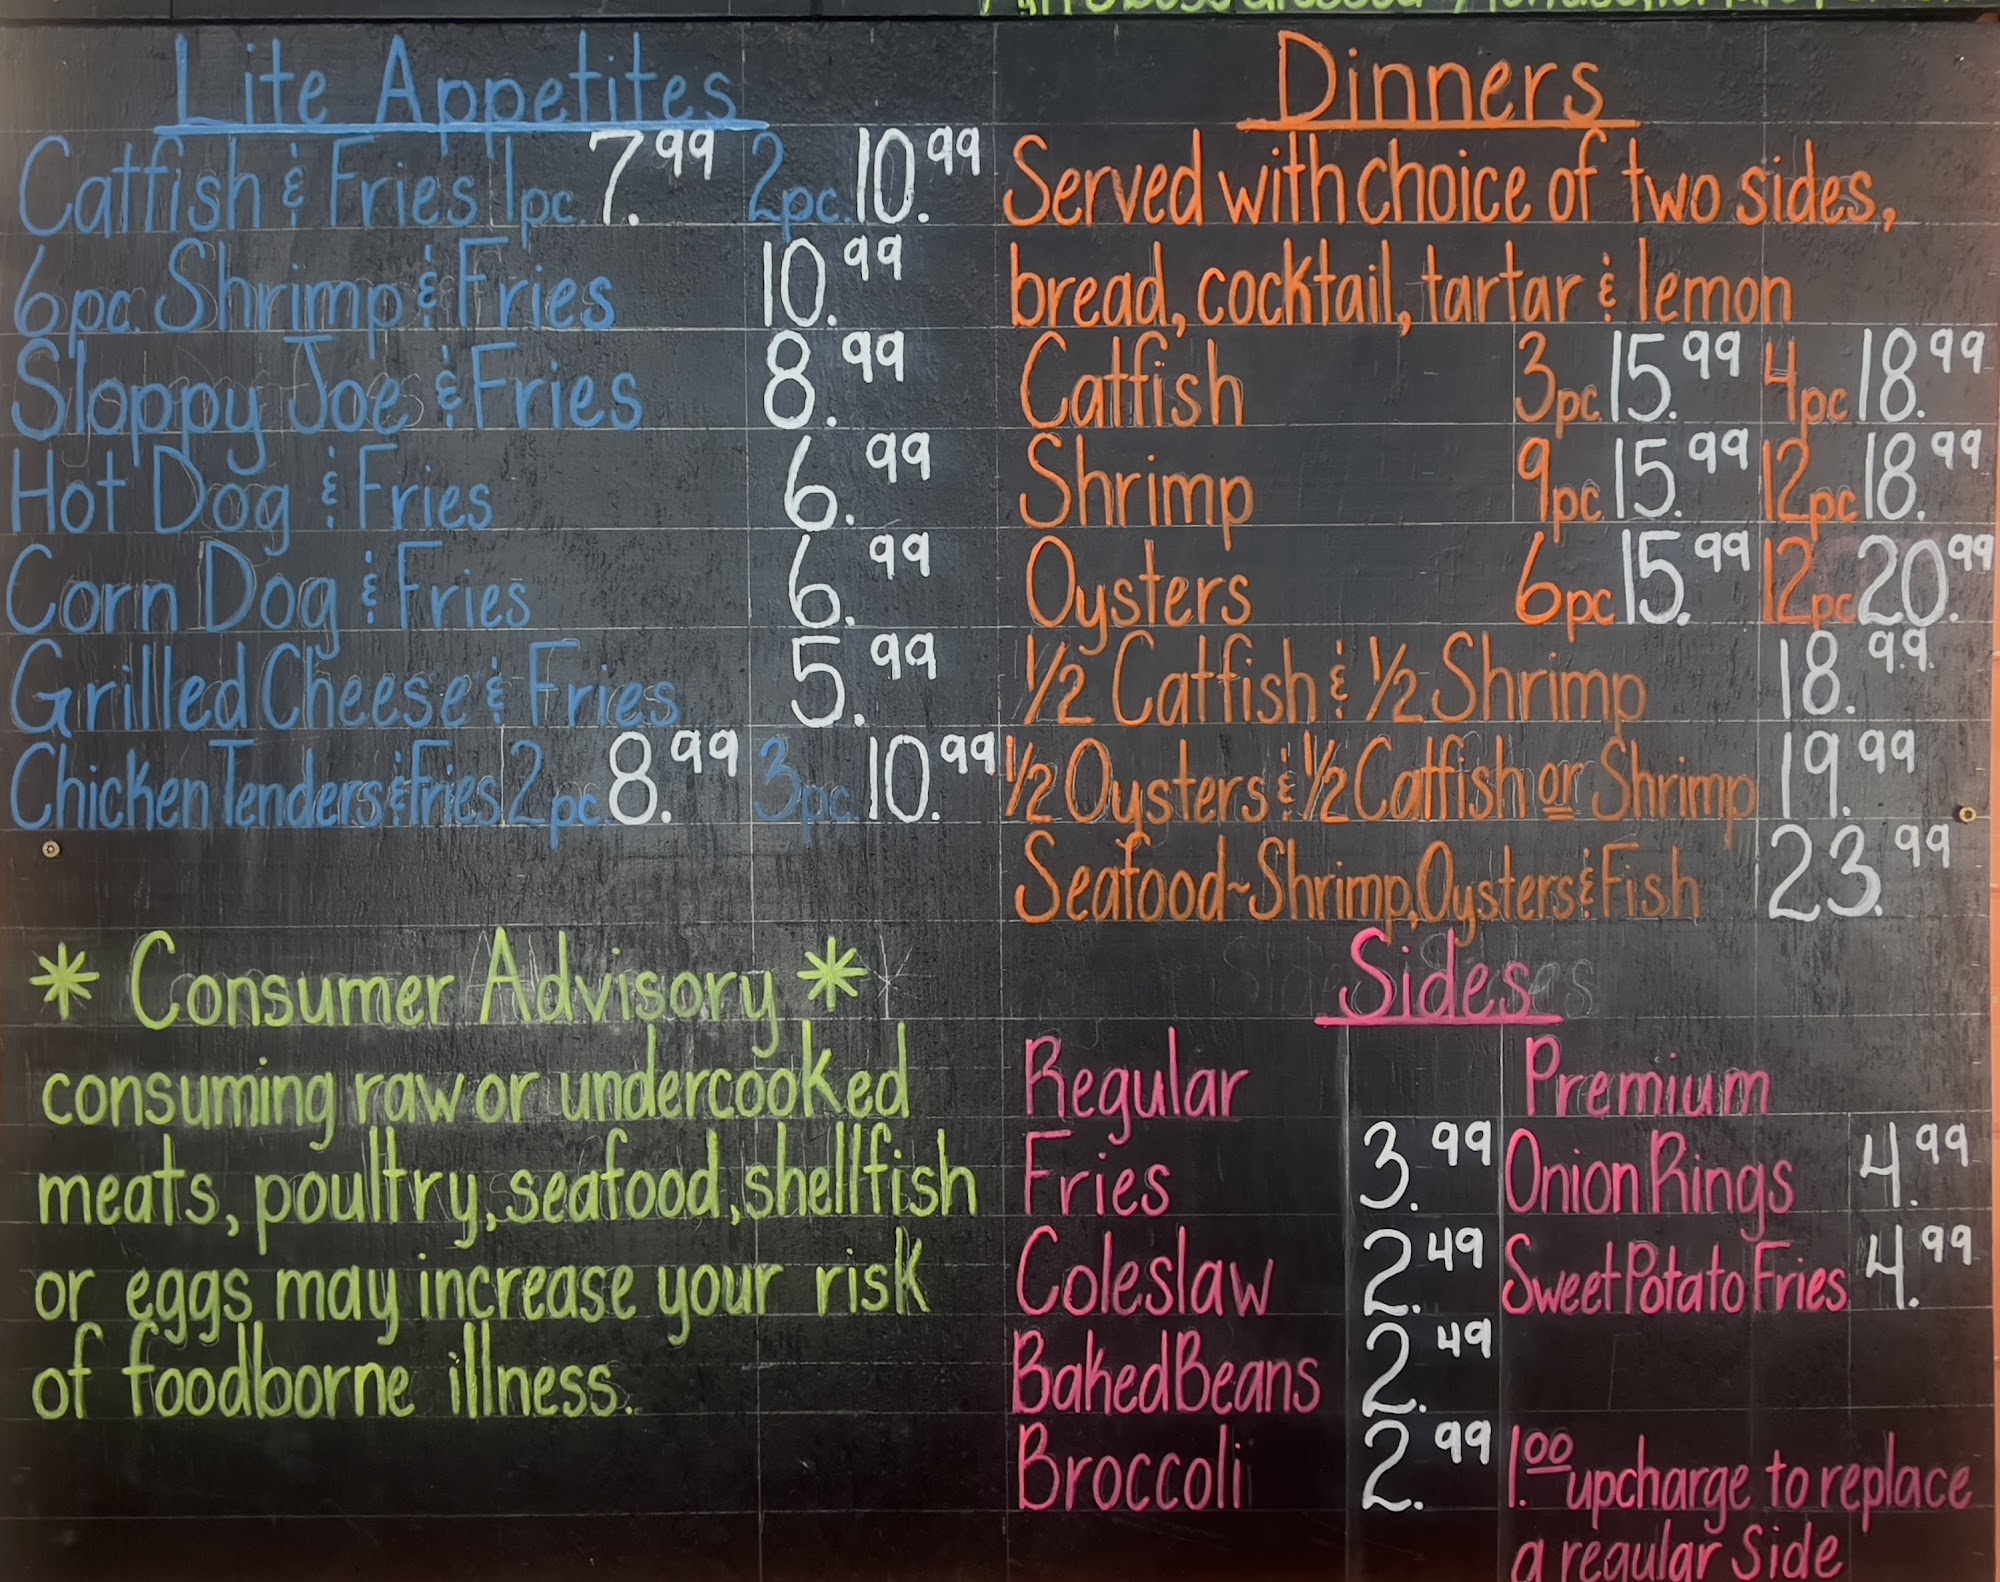 Lite Appetites
Catfish & Fries 1pc. 7.99 2pc. 10.99
6pc. Shrimp & Fries 10.99
Sloppy Joe & Fries 8.99
Hot Dog & Fries 6.99
Corn Dog & Fries 6.99
Grilled Cheese & Fries 5.99
Chicken Tenders & Fries 2pc 8.99 3pc. 10.99
* Consumer Advisory *
consuming raw or undercooked
meats, poultry, seafood, shellfish
or eggs may increase your risk
of foodborne illness.
Dinners
Served with choice of two sides,
bread, cocktail, tartar & lemon
Catfish 3pc. 15.99 4pc 18.99
Shrimp 9pc 15.99 12pc 18.99
Oysters 6pc 15.99 12pc 20.99
1/2 Catfish & 1/2 Shrimp 18.99
1/2 Oysters & 1/2 Catfish or Shrimp 19.99
Seafood~Shrimp, Oysters & Fish 23.99
Sides
Regular Premium
Fries 3.99 Onion Rings 4.99
Coleslaw 2.49 Sweet Potato Fries 4.99
Baked Beans 2.49
Broccoli 2.99 1.00 upcharge to replace
a regular Side